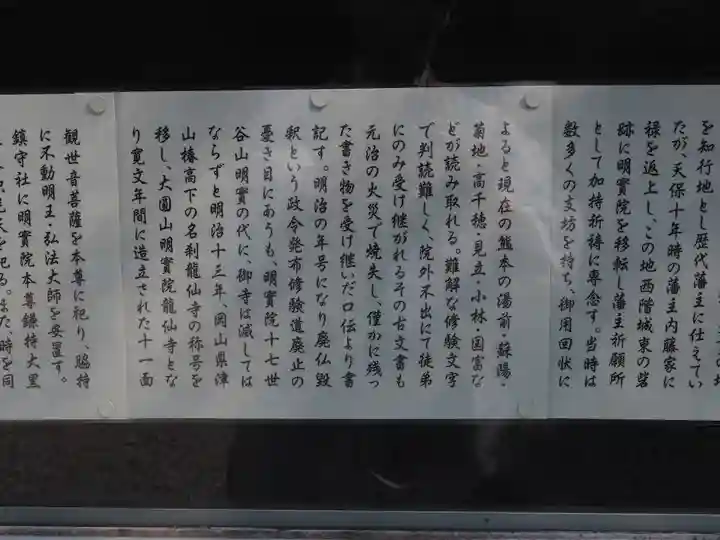 を知行地とし歴代藩主に仕えてい
たが、天保十年時の藩主内藤家に
禄を返上し、この地西階城東の砦
跡に明實院を移転し藩主祈願所
として加持祈祷に専念す。当時は
数多くの支坊を持ち、御用回状に
よると現在の熊本の湯前・蘇陽・
菊地・高千穂・見立・小林・国富な
どが読み取れる。難解な修験文字
で判読難しく、院外不出にて徒弟
にのみ受け継がれるその古文書も
元治の火災で焼失し、僅かに残っ
た書き物を受け継いだ口伝より書
記す。明治の年号になり廃仏毀
釈という政令発布修験道廃止の
憂き目にあうも、明實院十七世
谷山明實の代に、御寺は滅しては
ならずと明治十三年、岡山県津
山椿高下の名刹龍仙寺の称号を
移し、大圓山明實院龍仙寺とな
り寛文年間に造立された十一面
観世音菩薩を本尊に祀り、脇持
に不動明王・弘法大師を安置す。
鎮守社に明實院本尊鎌持大黒
天を祀る。また、時を同